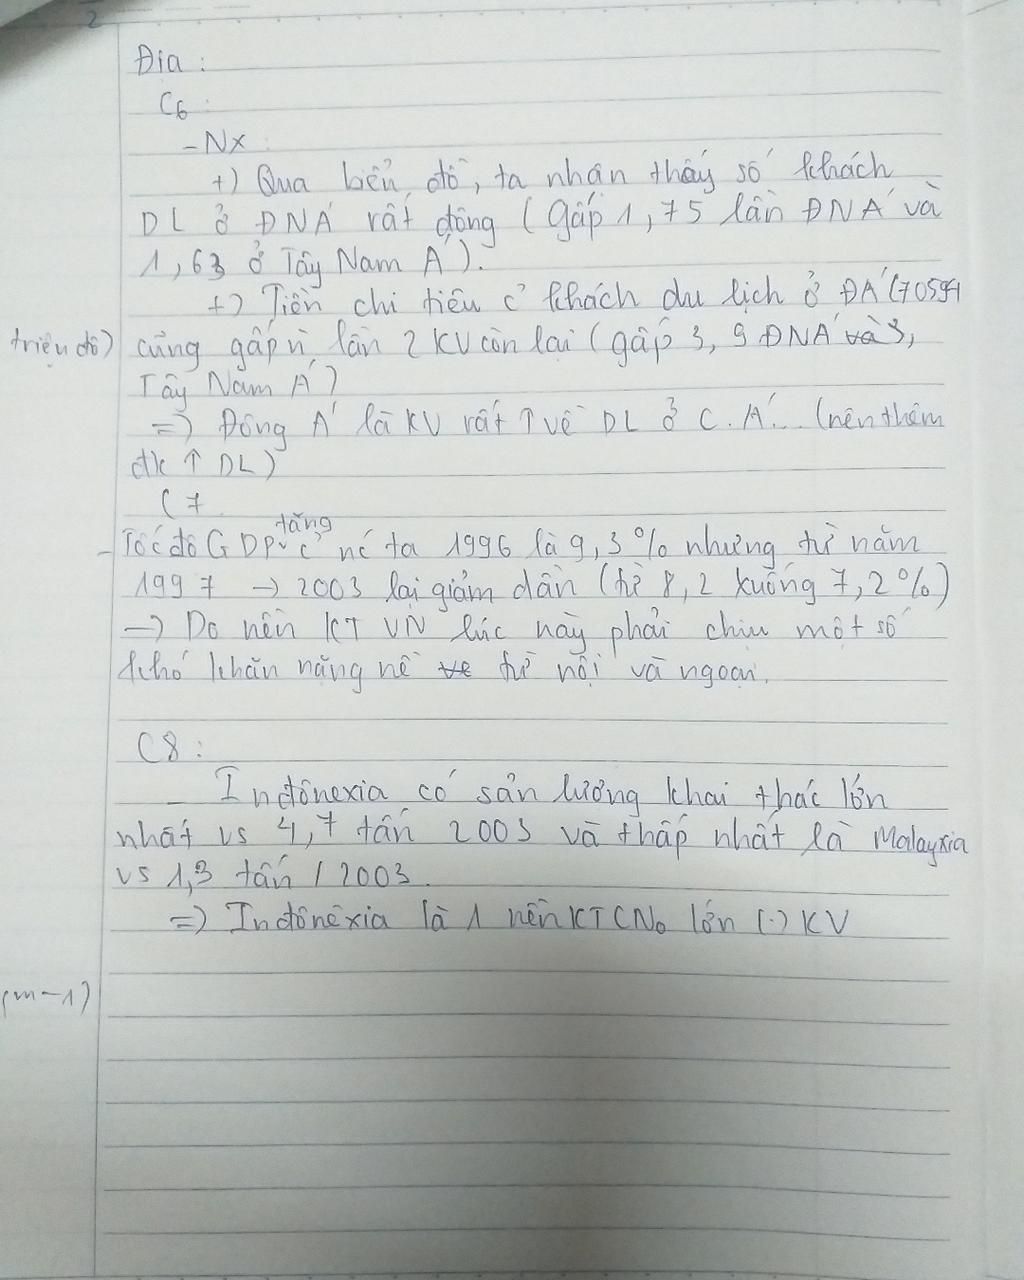 2
Địa :
C6 :
- Nx :
+) Qua biểu đồ, ta nhận thấy số khách
DL ở ĐNÁ rất đông (Gấp 1,75 lần ĐNÁ và
1,63 ở Tây Nam Á).
+) Tiền chi tiêu c̉ khách du lịch ở ĐÁ (70594
triệu đô) cũng gấp n` lần 2 KV còn lại (gấp 3,9 ĐNÁ và 3,
Tây Nam Á)
=) Đông Á là KV rất ↑ về DL ở C.Á... (nên thêm
đk ↑ DL)
C7
- Tốc độ GDP tăng c̉ nc ta 1996 là 9,3% nhưng từ năm
1997 → 2003 lại giảm dần (từ 8,2 xuống 7,2%)
→ Do nền KT VN lúc này phải chịu một số
khó khăn nặng nề từ nội và ngoại.
C8 :
- Inđônexia có sản lượng khai thác lớn
nhất vs 4,7 tấn 2003 và thấp nhất là Malayxia
vs 1,3 tấn / 2003.
=) Inđônêxia là 1 nền KTCNo lớn (.) KV
(m-1)